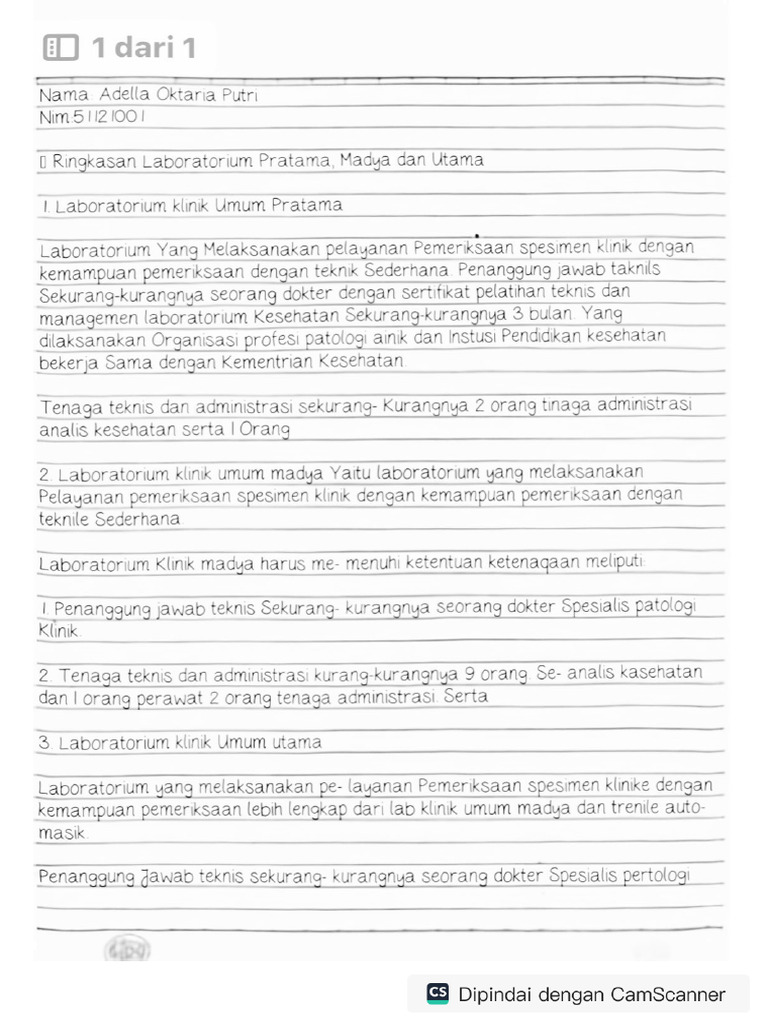 1 dari 1
Nama: Adella Oktaria Putri
Nim:51121001
▯ Ringkasan Laboratorium Pratama, Madya dan Utama
1. Laboratorium klinik Umum Pratama
Laboratorium Yang Melaksanakan pelayanan Pemeriksaan spesimen klinik dengan
kemampuan pemeriksaan dengan teknik Sederhana. Penanggung jawab taknils
Sekurang-kurangnya seorang dokter dengan sertifikat pelatihan teknis dan
managemen laboratorium Kesehatan Sekurang-kurangnya 3 bulan. Yang
dilaksanakan Organisasi profesi patologi ainik dan Instusi Pendidikan kesehatan
bekerja Sama dengan Kementrian Kesehatan.
Tenaga teknis dan administrasi sekurang- Kurangnya 2 orang tinaga administrasi
analis kesehatan serta 1 Orang
2. Laboratorium klinik umum madya Yaitu laboratorium yang melaksanakan
Pelayanan pemeriksaan spesimen klinik dengan kemampuan pemeriksaan dengan
teknile Sederhana
Laboratorium Klinik madya harus me- menuhi ketentuan ketenaqaan meliputi:
1. Penanggung jawab teknis Sekurang- kurangnya seorang dokter Spesialis patologi
Klinik.
2. Tenaga teknis dan administrasi kurang-kurangnya 9 orang. Se- analis kasehatan
dan 1 orang perawat 2 orang tenaga administrasi. Serta
3. Laboratorium klinik Umum utama
Laboratorium yang melaksanakan pe- layanan Pemeriksaan spesimen klinike dengan
kemampuan pemeriksaan lebih lengkap dari lab klinik umum madya dan trenile auto-
masik.
Penanggung Jawab teknis sekurang- kurangnya seorang dokter Spesialis pertologi
CS Dipindai dengan CamScanner